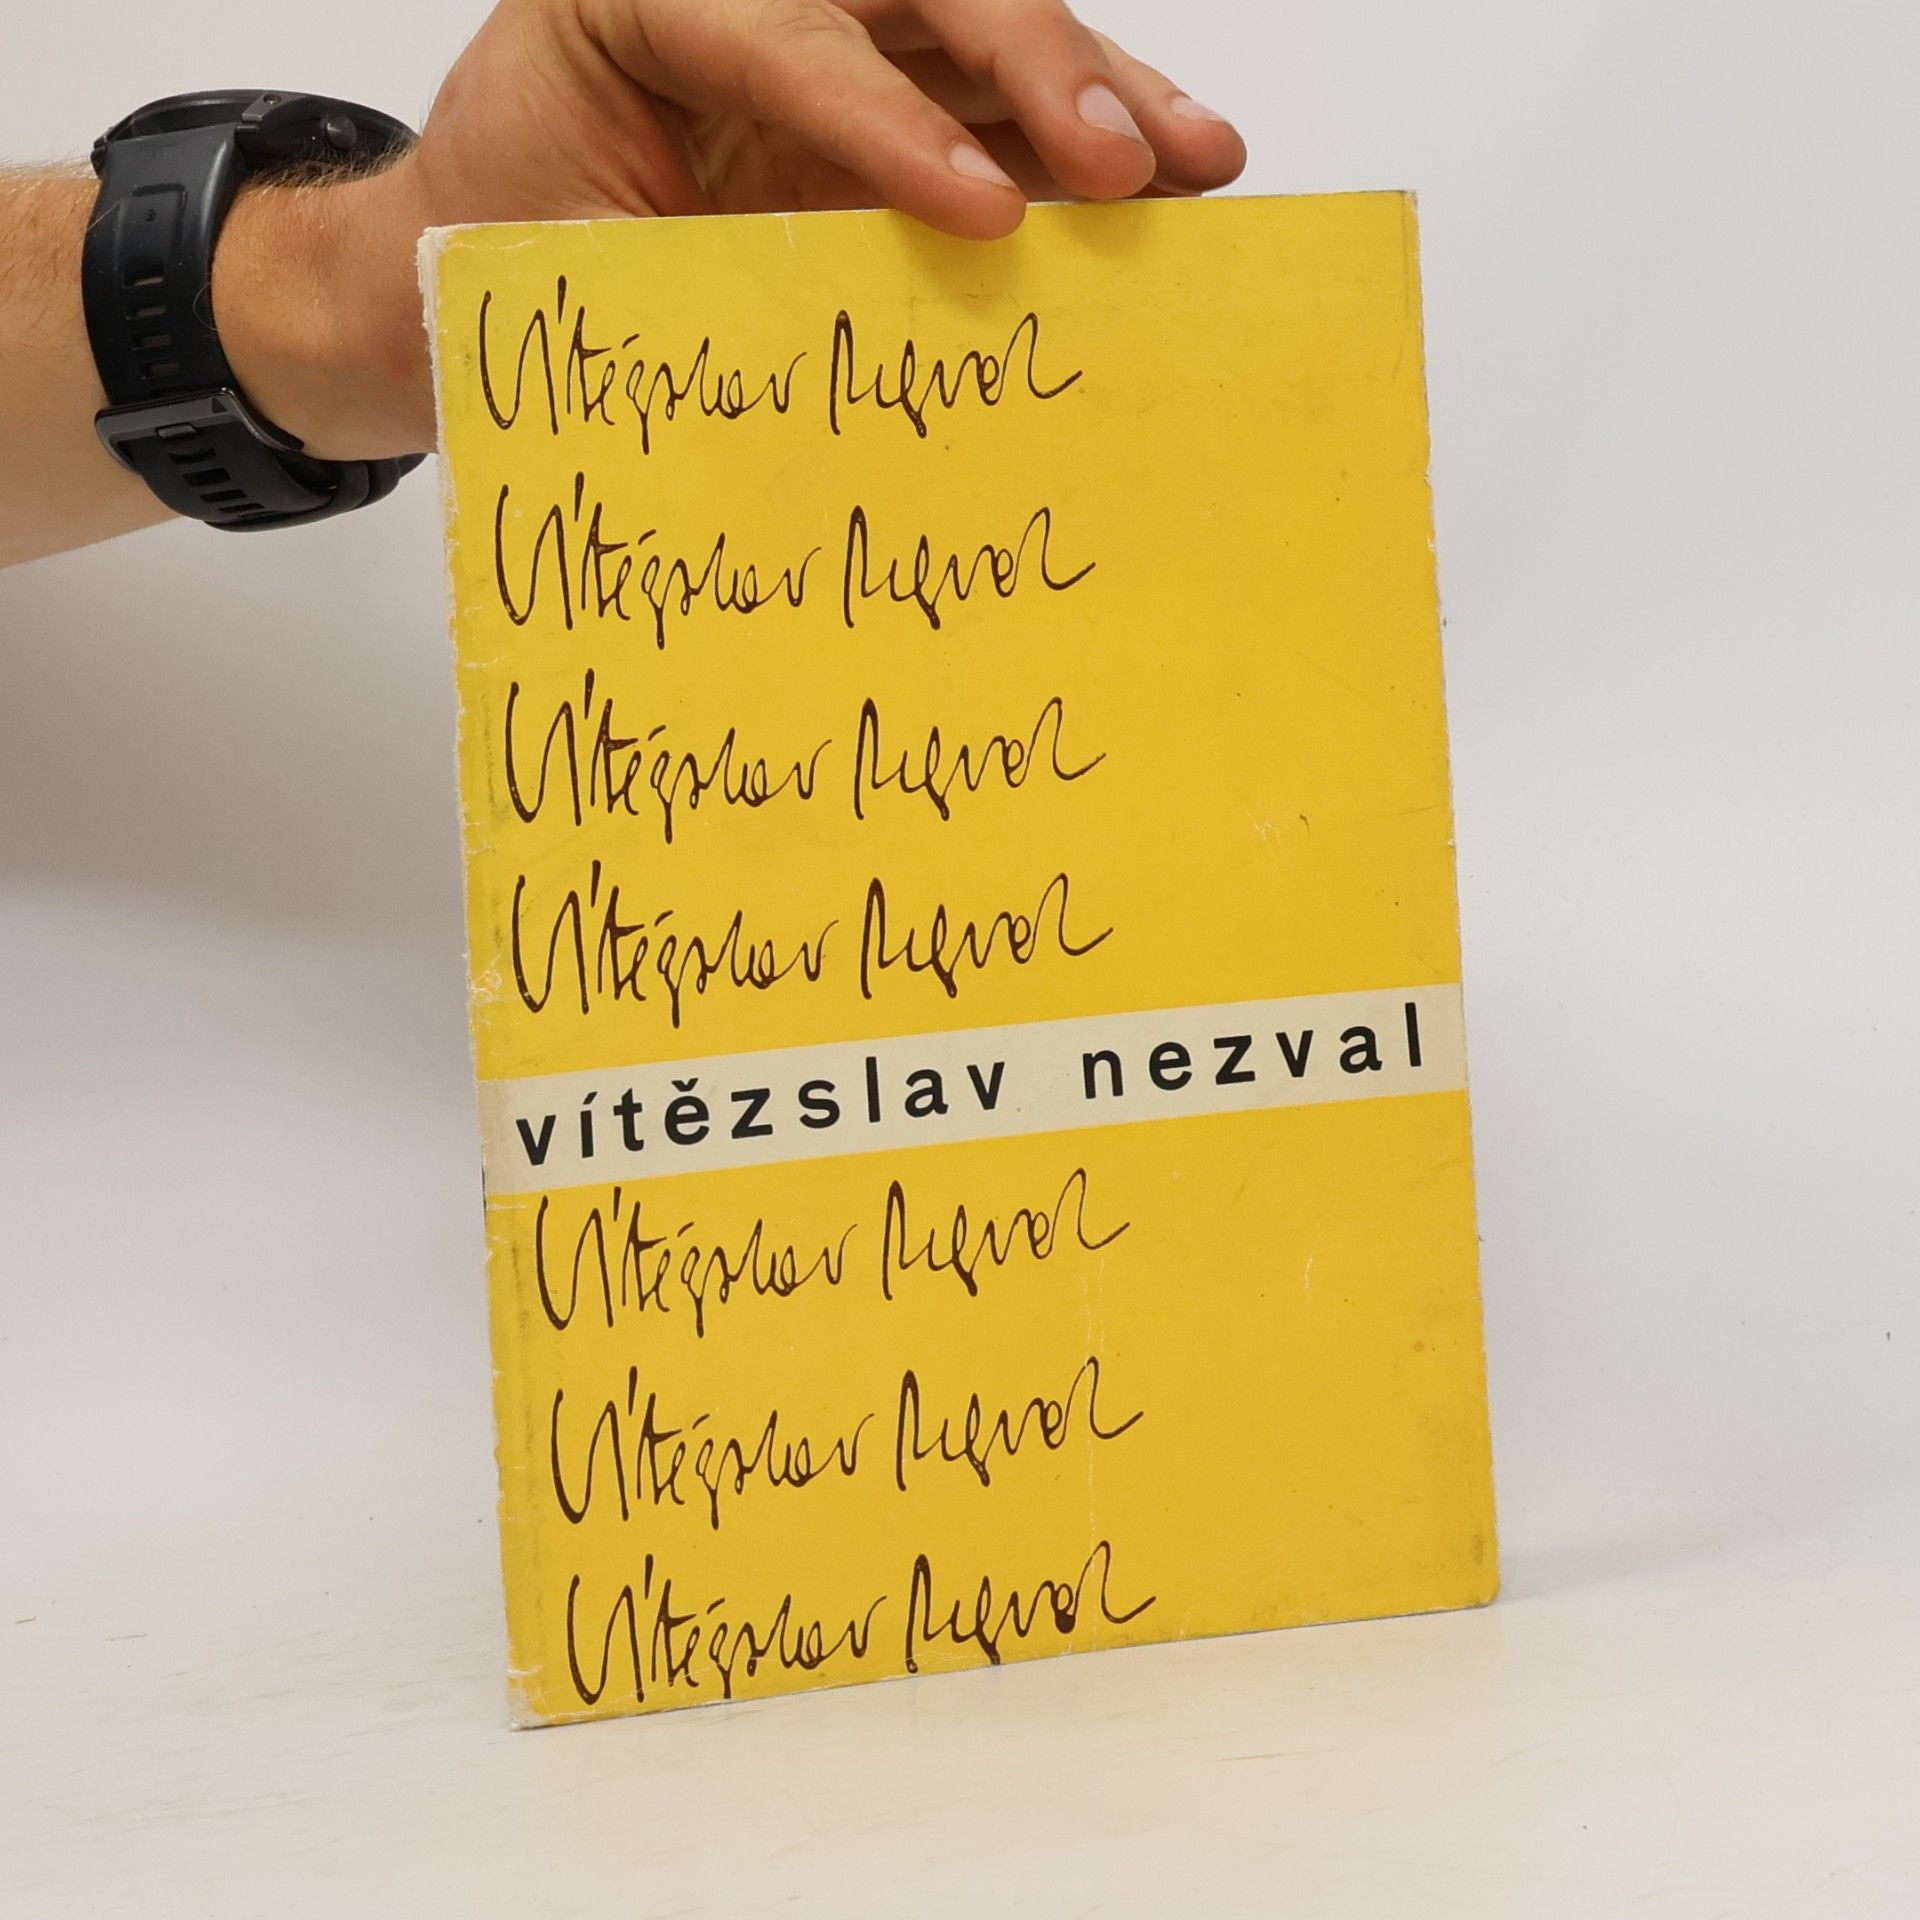 Vítězslav Nezval
Vítězslav Nezval
Vítězslav Nezval
Vítězslav Nezval
vítězslav nezval
Vítězslav Nezval
Vítězslav Nezval
Vítězslav Nezval